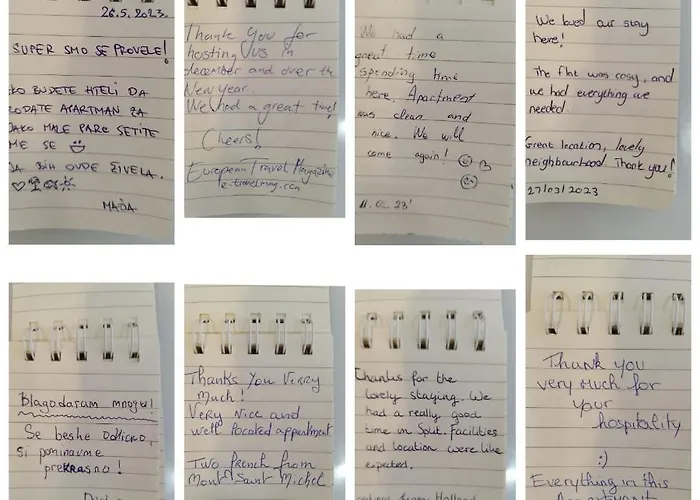 26.5.2023.
SUPER SMO SE PROVELE!
KO BUDETE HTELI DA
RODATE APARTMAN ZA
JAKO MALE PARE SETITE
ME SE
JA BIH OVDE ŽIVELA.
MAŠA
Thank you for
hosting us in
december and over the
New year.
We had a great time!
Cheers!
European Travel Magazine
e-travelmag.com
We had a
great time
spending time
here. Apartment
was clean and
nice. We will
come again!
11.02.23'
We loved our stay
here!
The flat was cosy, and
we had everything we
needed.
Great location, lovely
neighbourhood. Thank you!
27/03/2023
Blagodaram mnogu!
Se beshe odlicno,
si pominavme
prekrasno!
Thanks you verry
much!
Very nice and
well located appartment
Two french from
Mont Saint Michel
Thanks for the
lovely staying. We
had a really good
time in Split. Facilities
and location were like
expected.
Holland
Thank you
very much for
your
hospitality
:)
Everything in this